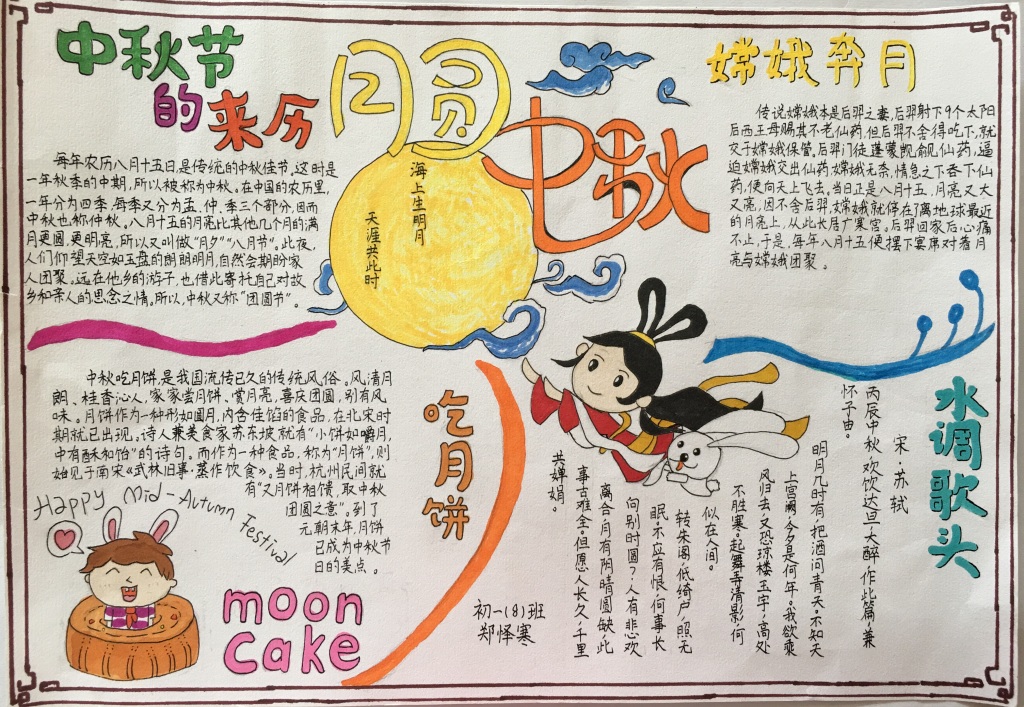 中秋节
的来历
每年农历八月十五日,是传统的中秋佳节,这时是
一年秋季的中期,所以被称为中秋。在中国的农历里,
一年分为四季,每季又分为孟、仲、季三个部分,因而
中秋也称仲秋。八月十五的月亮比其他几个月的满
月更圆,更明亮,所以又叫做“月夕”“八月节”。此夜,
人们仰望天空如玉盘的朗朗明月,自然会期盼家
人团聚。远在他乡的游子,也借此寄托自己对故
乡和亲人的思念之情。所以,中秋又称“团圆节”。
月圆
中秋
海上生明月
天涯共此时
嫦娥奔月
传说嫦娥本是后羿之妻,后羿射下9个太阳
后西王母赐其不老仙药,但后羿不舍得吃下,就
交于嫦娥保管。后羿门徒蓬蒙觊觎仙药,逼
迫嫦娥交出仙药,嫦娥无奈,情急之下吞下仙
药,便向天上飞去。当日正是八月十五,月亮又大
又亮,因不舍后羿,嫦娥就停在了离地球最近
的月亮上,从此长居广寒宫。后羿回家后心痛
不止,于是,每年八月十五便摆下宴席对着月
亮与嫦娥团聚。
吃月饼
中秋吃月饼,是我国流传已久的传统风俗。风清月
朗、桂香沁人,家家尝月饼、赏月亮,喜庆团圆,别有风
味。月饼作为一种形如圆月,内含佳馅的食品,在北宋时
期就已出现。诗人兼美食家苏东坡就有“小饼如嚼月,
中有酥和饴”的诗句。而作为一种食品,称为“月饼”,则
始见于南宋《武林旧事·蒸作饮食》。当时,杭州民间就
有“又月饼相馈,取中秋
团圆之意”。到了
元朝末年,月饼
已成为中秋节
日的美点。
Happy Mid-Autumn Festival
moon
cake
水调歌头
宋·苏轼
丙辰中秋,欢饮达旦,大醉,作此篇,兼
怀子由。
明月几时有,把酒问青天。不知天
上宫阙,今夕是何年。我欲乘
风归去,又恐琼楼玉宇,高处
不胜寒。起舞弄清影,何
似在人间。
转朱阁,低绮户,照无
眠。不应有恨,何事长
向别时圆?人有悲欢
离合,月有阴晴圆缺,此
事古难全。但愿人长久,千里
共婵娟。
初一(8)班
郑怿寒